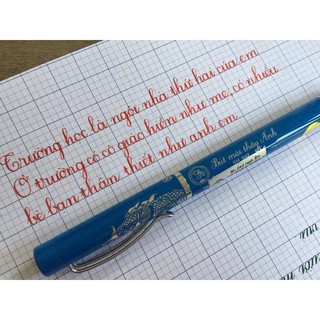 Trường học là ngôi nhà thứ hai của em
Ở trường có cô giáo hiền như mẹ, có nhiều
bè bạn thân thiết như anh em
Bút mài thầy Ánh